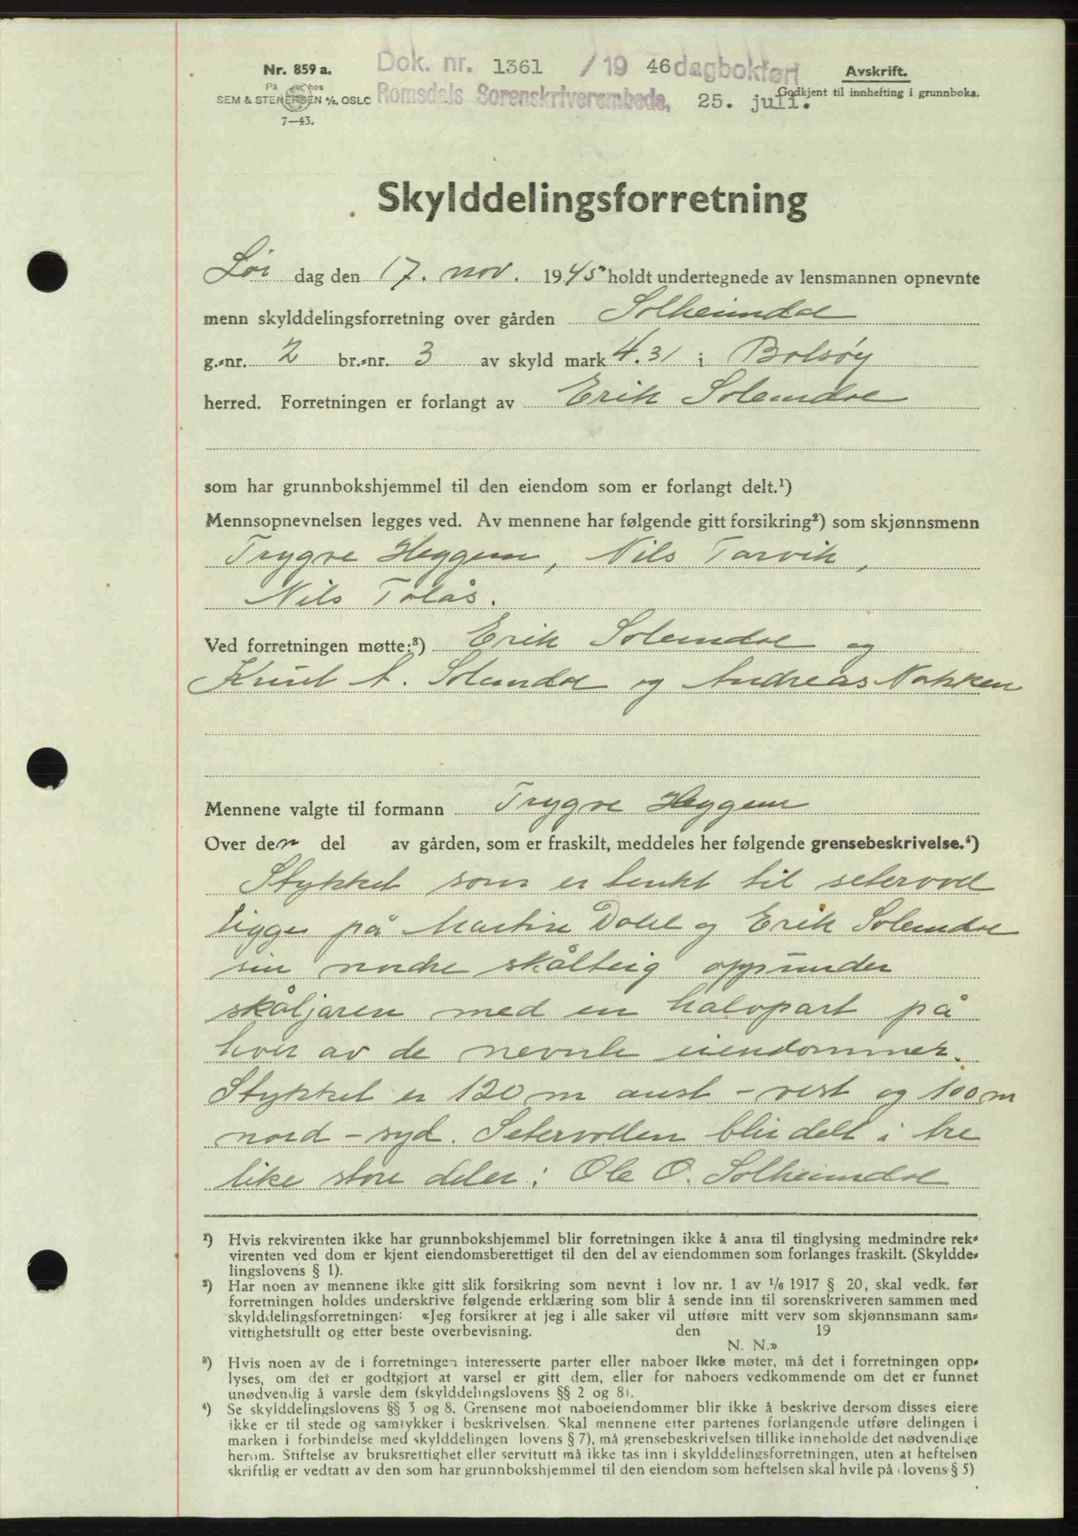 Nr. 859 a.
På lager hos
SEM & STENERSEN A/S, OSLO
7—43.
Dok. nr. 1361 /19 46 dagbokført
Romsdals Sorenskriverembede, 25. juli.
Avskrift.
Godkjent til innhefting i grunnboka.
Skylddelingsforretning
Lør dag den 17. nov. 1945 holdt undertegnede av lensmannen opnevnte
menn skylddelingsforretning over gården Solheimdal
g.-nr. 2 br.-nr. 3 av skyld mark 4.31 i Bolsøy
herred. Forretningen er forlangt av Erik Solemdal
som har grunnbokshjemmel til den eiendom som er forlangt delt.¹)
Mennsopnevnelsen legges ved. Av mennene har følgende gitt forsikring²) som skjønnsmenn
Trygve Heggem, Nils Torvik,
Nils Tolås.
Ved forretningen møtte:³) Erik Solemdal og
Knut A. Solemdal og Andreas Nakken
Mennene valgte til formann Trygve Heggem
Over den del av gården, som er fraskilt, meddeles her følgende grensebeskrivelse.⁴)
Stykket som er tenkt til setervoll
ligger på Martin Dahl og Erik Solemdal
sin nedre skålteig oppunder
skåljaren med en halvpart på
hver av de nevnte eiendommer.
Stykket er 120 m aust - vest og 100 m
nord - syd. Setervollen blir delt i tre
like store deler: Ole O. Solheimdal
¹) Hvis rekvirenten ikke har grunnbokshjemmel blir forretningen ikke å anta til tinglysing medmindre rek-
virenten ved dom er kjent eiendomsberettiget til den del av eiendommen som forlanges fraskilt. (Skyldde-
lingslovens § 1).
²) Har noen av mennene ikke gitt slik forsikring som nevnt i lov nr. 1 av 1/6 1917 § 20, skal vedk. før
forretningen holdes underskrive følgende erklæring som blir å sende inn til sorenskriveren sammen med
skylddelingsforretningen: «Jeg forsikrer at jeg i alle saker vil utføre mitt verv som skjønnsmann sam-
vittighetsfullt og etter beste overbevisning. den 19
N. N.»
³) Hvis noen av de i forretningen interesserte parter eller naboer ikke møter, må det i forretningen opp-
lyses, om det er godtgjort at varsel er gitt dem, eller for naboers vedkommende om det er funnet
unødvendig å varsle dem (skylddelingslovens §§ 2 og 8).
⁴) Se skylddelingslovens §§ 3 og 8. Grensene mot naboeiendommer blir ikke å beskrive dersom disses eiere
ikke er til stede og samtykker i beskrivelsen. Skal mennene etter partenes forlangende utføre delingen i
marken i forbindelse med skylddelingen lovens § 7), må grensebeskrivelsen tillike inneholde det nødvendige
herom. Stiftelse av bruksrettighet eller servitutt må ikke tas inn i skylddelingsforretningen, uten at heftelsen
skriftlig er vedtatt av den som har grunnbokshjemmel til den eiendom som heftelsen skal hvile på (lovens § 5)